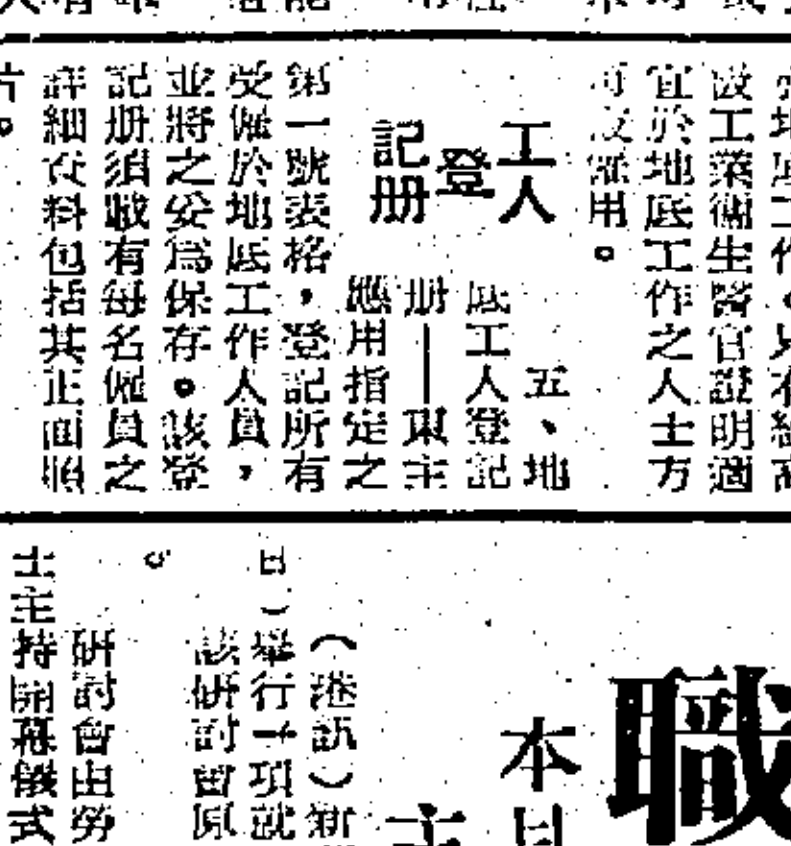 宜於地底工作之人士方
可受僱用。
工人
登
記冊
五、地
底工人登記
冊——東主
應用指定之
第一號表格，登記所有
受僱於地底工作人員，
並將之妥爲保存。該登
記册須載有每名僱員之
詳細資料包括其正面照
片。
職
本月
主
（港訊）新
日）舉行一項就
該研討會原
。
研討會由勞
士主持開幕儀式